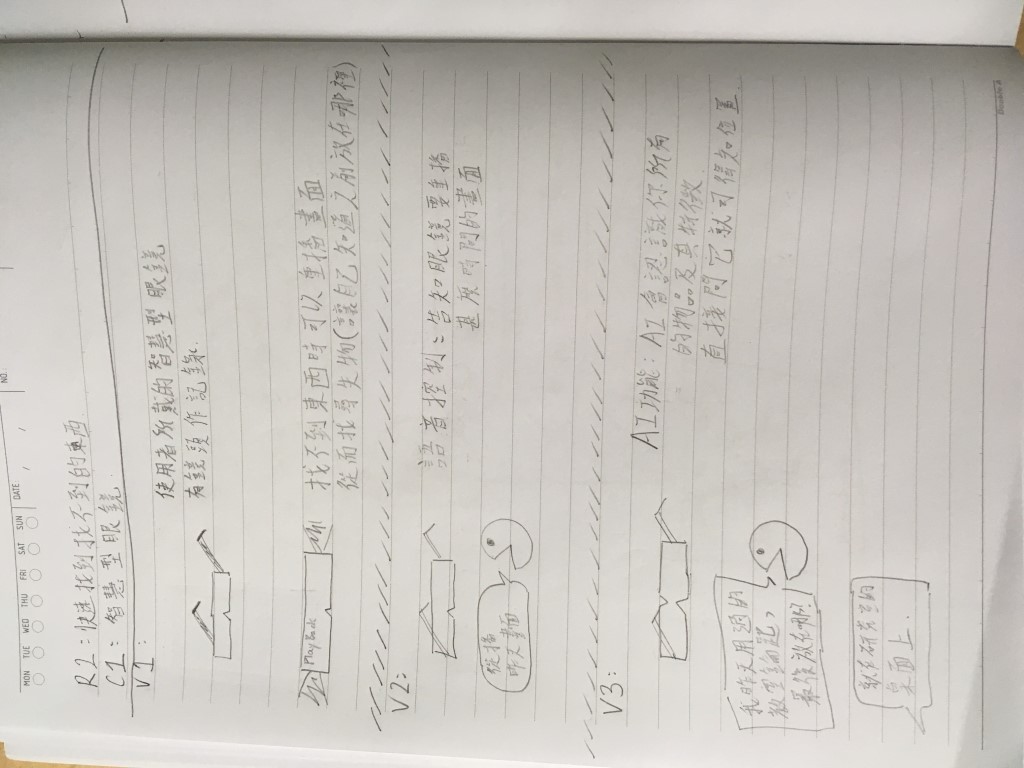 MON TUE WED THU FRI SAT SUN
DATE: / /
NO.
R1：快速找到找不到的東西
C1：智慧型眼鏡
V1：
使用者所戴的智慧型眼鏡
有鏡頭作記錄.
PlayBack
找不到東西時可以重播畫面
從而找尋失物(讓自己知道之前放在哪裡)
V2：
語音控制：告知眼鏡要重播
甚麼時間的畫面
從播
昨天畫面
V3：
AI功能：AI會認識你所有
的物品及其特徵
直接問它就可得知位置.
我昨天用過的
教室鑰匙,
最後放在哪?
就在研究室的
桌面上.
Double A